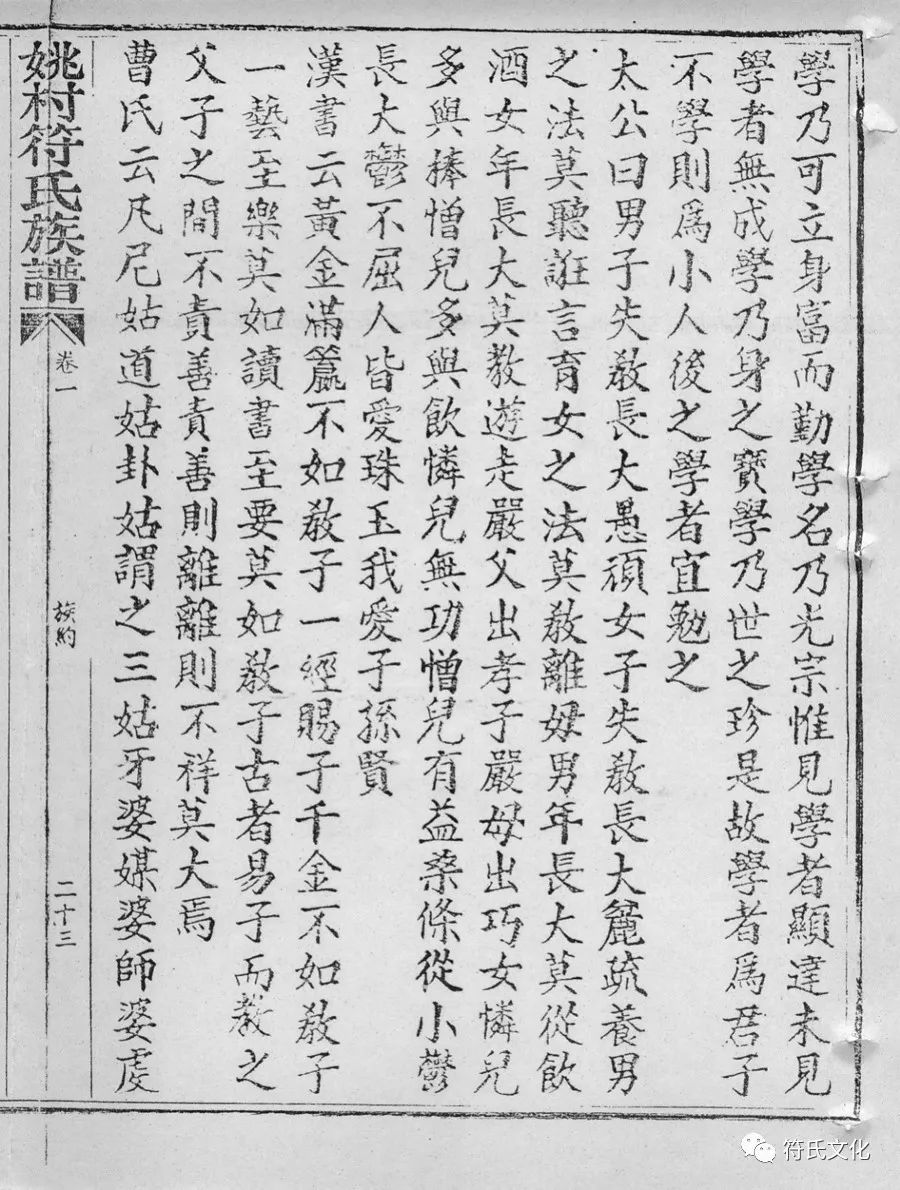 學乃可立身富而勤學名乃光宗惟見學者顯達未見
學者無成學乃身之寶學乃世之珍是故學者爲君子
不學則爲小人後之學者宜勉之
太公曰男子失敎長大愚頑女子失敎長大麄疏養男
之法莫聽誑言育女之法莫敎離母男年長大莫從飲
酒女年長大莫敎遊走嚴父出孝子嚴母出巧女憐兒
多與捧憎兒多與飲憐兒無功憎兒有益桑條從小鬱
長大鬱不屈人皆愛珠玉我愛子孫賢
漢書云黃金滿籯不如敎子一經賜子千金不如敎子
一藝至樂莫如讀書至要莫如敎子古者易子而敎之
父子之間不責善責善則離離則不祥莫大焉
曹氏云凡尼姑道姑卦姑謂之三姑牙婆媒婆師婆虔
姚村符氏族譜 卷一 族約 二十三
符氏文化